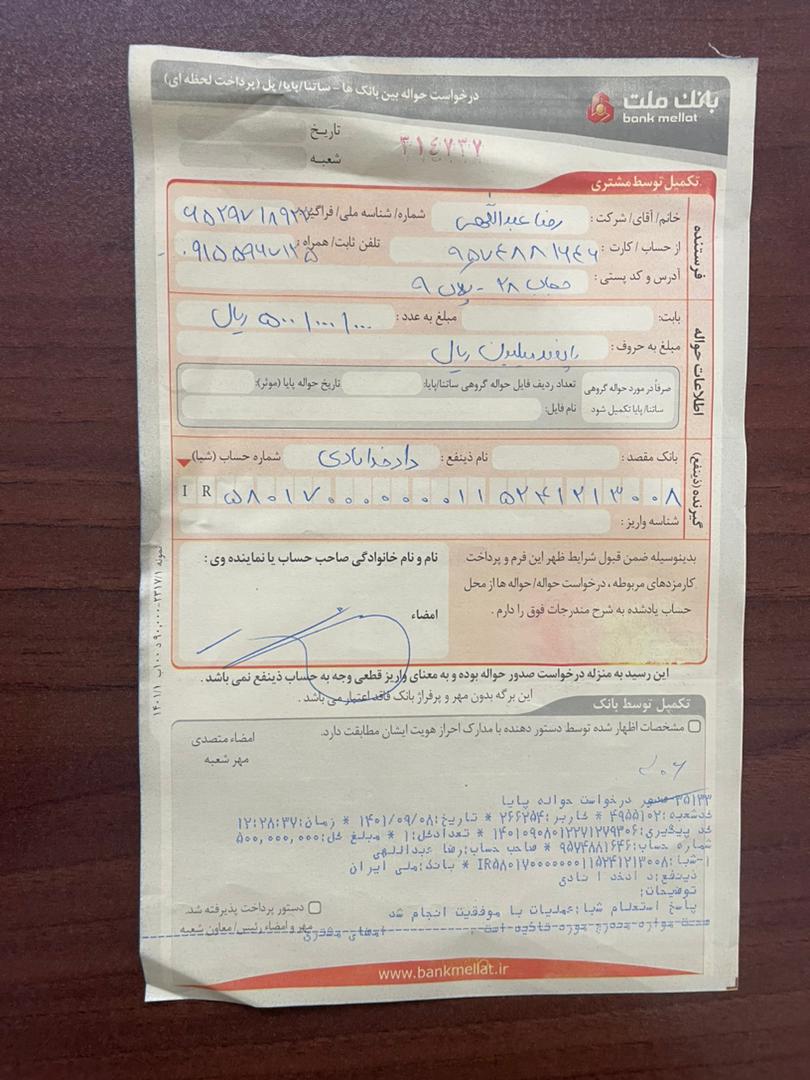 بانک ملت
bank mellat
درخواست حواله بین بانک ها - ساتنا/پایا/پل (پرداخت لحظه ای)
تاریخ
۳۱٤۷۳۷
شعبه
تکمیل توسط مشتری
فرستنده
خانم/آقای/شرکت: رضا عبداللهی شماره/شناسه ملی/فراگیر:
از حساب/کارت: ۹۵۷۴۸۸۱۶۴۶ تلفن ثابت/همراه:
آدرس و کد پستی: ۲۸ - پلاک ۹
اطلاعات حواله
بابت: مبلغ به عدد: ۵۰۰/۰۰۰/۰۰۰ ریال
مبلغ به حروف: پانصد میلیون ریال
صرفاً در مورد حواله گروهی ساتنا/پایا تکمیل شود
تعداد ردیف فایل حواله گروهی ساتنا/پایا: تاریخ حواله پایا (موثر):
نام فایل:
گیرنده (ذینفع)
بانک مقصد: نام ذینفع: دادخدا بادی شماره حساب (شبا)
IR ۵۸۰۱۷۰۰۰۰۰۰۰۱۱۵۲۴۱۲۱۳۰۰۸
شناسه واریز:
بدینوسیله ضمن قبول شرایط ظهر این فرم و پرداخت
کارمزدهای مربوطه، درخواست حواله/حواله ها از محل
حساب یادشده به شرح مندرجات فوق را دارم.
نام و نام خانوادگی صاحب حساب یا نماینده وی:
امضاء
این رسید به منزله درخواست صدور حواله بوده و به معنای واریز قطعی وجه به حساب ذینفع نمی باشد.
این برگه بدون مهر و پرفراژ بانک فاقد اعتبار می باشد.
تکمیل توسط بانک
مشخصات اظهار شده توسط دستور دهنده با مدارک احراز هویت ایشان مطابقت دارد.
امضاء متصدی
مهر شعبه
۳۵۱۳۳ صدور درخواست حواله پایا
کدشعبه:۴۹۵۵۱۰۲ * کاربر:۲۶۶۲۵۴ * تاریخ:۱۴۰۱/۰۹/۰۸ * زمان:۱۲:۲۸:۳۷
کد پیگیری:۱۴۰۱۰۹۰۸۰۱۲۲۷۱۲۷۹۳۰۶ * تعدادکل:۱ * مبلغ کل:۵۰۰,۰۰۰,۰۰۰
شماره حساب:۹۵۷۴۸۸۱۶۴۶ * صاحب حساب:رضا عبداللهی
۱-شبا:IR۵۸۰۱۷۰۰۰۰۰۰۰۱۱۵۲۴۱۲۱۳۰۰۸ * بانک:ملی ایران
ذینفع:
توضیحات:
پاسخ استعلام شبا:عملیات با موفقیت انجام شد
صحت موارد مندرج مورد تائید است. امضای مشتری
دستور پرداخت پذیرفته شد.
مهر و امضاء رئیس/معاون شعبه
www.bankmellat.ir